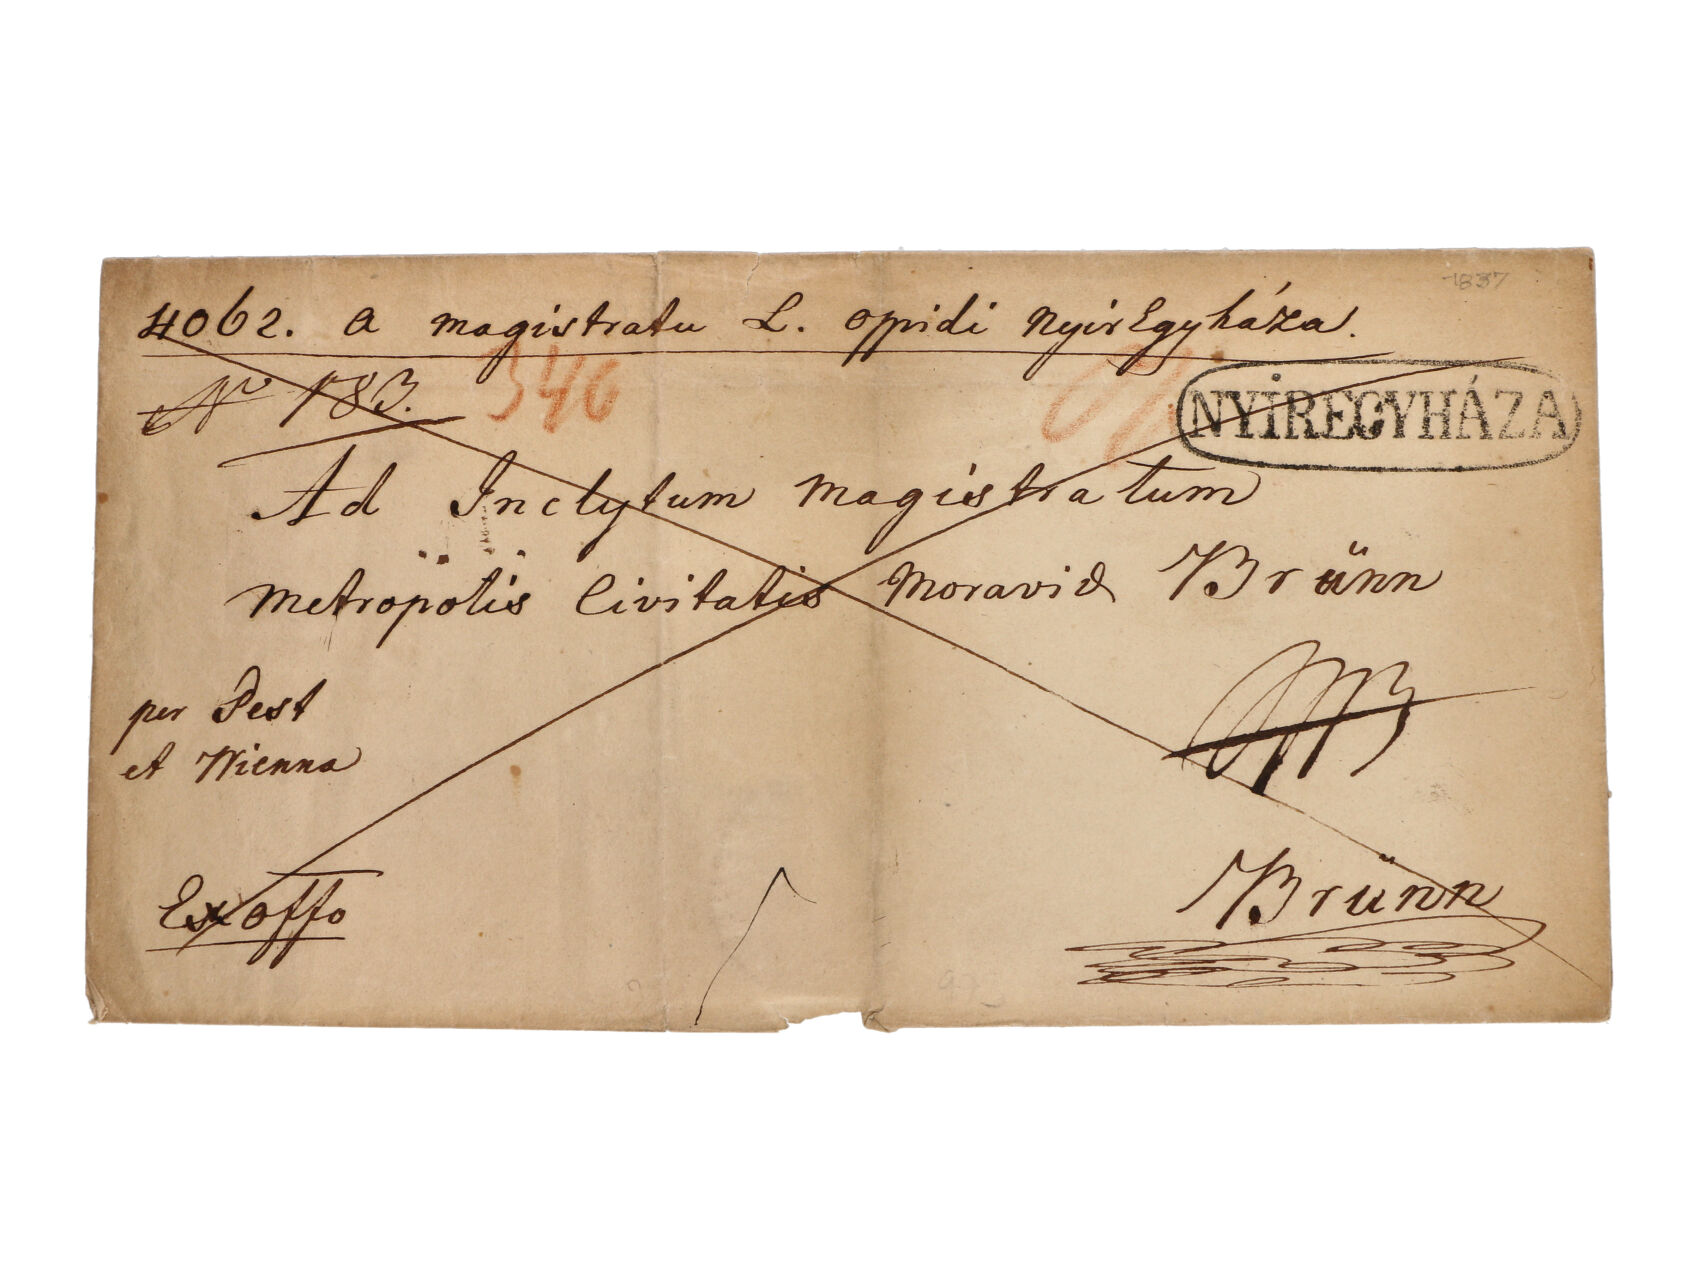 1837
4062. a magistratu L. oppidi NyirEgyháza.
No 183. 346
NYÍREGYHÁZA
Ad Inclytum Magistratum
Metropolis Civitatis Moraviæ Brünn
per Pest
et Wienna
Ex offo
Brünn